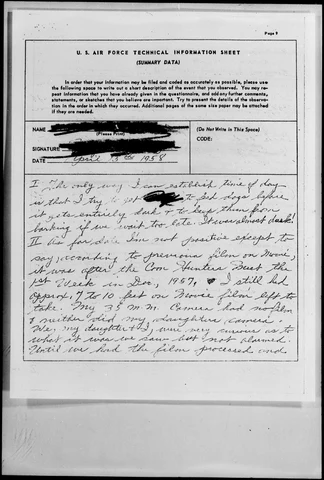 Page 8
U. S. AIR FORCE TECHNICAL INFORMATION SHEET
(SUMMARY DATA)
In order that your information may be filed and coded as accurately as possible, please use
the following space to write out a short description of the event that you observed. You may re-
peat information that you have already given in the questionnaire, and add any further comments,
statements, or sketches that you believe are important. Try to present the details of the observa-
tion in the order in which they occurred. Additional pages of the same size paper may be attached
if they are needed.
NAME
(Please Print)
(Do Not Write in This Space)
CODE:
SIGNATURE
DATE April 1958
I The only way I can establish time of day
is that I try to get to feed dogs before
it gets entirely dark & to keep them from
barking if we wait too late. It was almost dark!
II As for date I'm not positive except to
say, according to previous film on Movie,
it was after the Coon Hunters Meet the
1st Week in Dec, 1957, I still had
approx, 7 to 10 feet on Movie film left to
take. My 35 m.m. Camera had no film
& neither did my daughters camera.
We, my daughter & I, were very curious as to
what it was we saw but not alarmed.
Until we had the film processed and